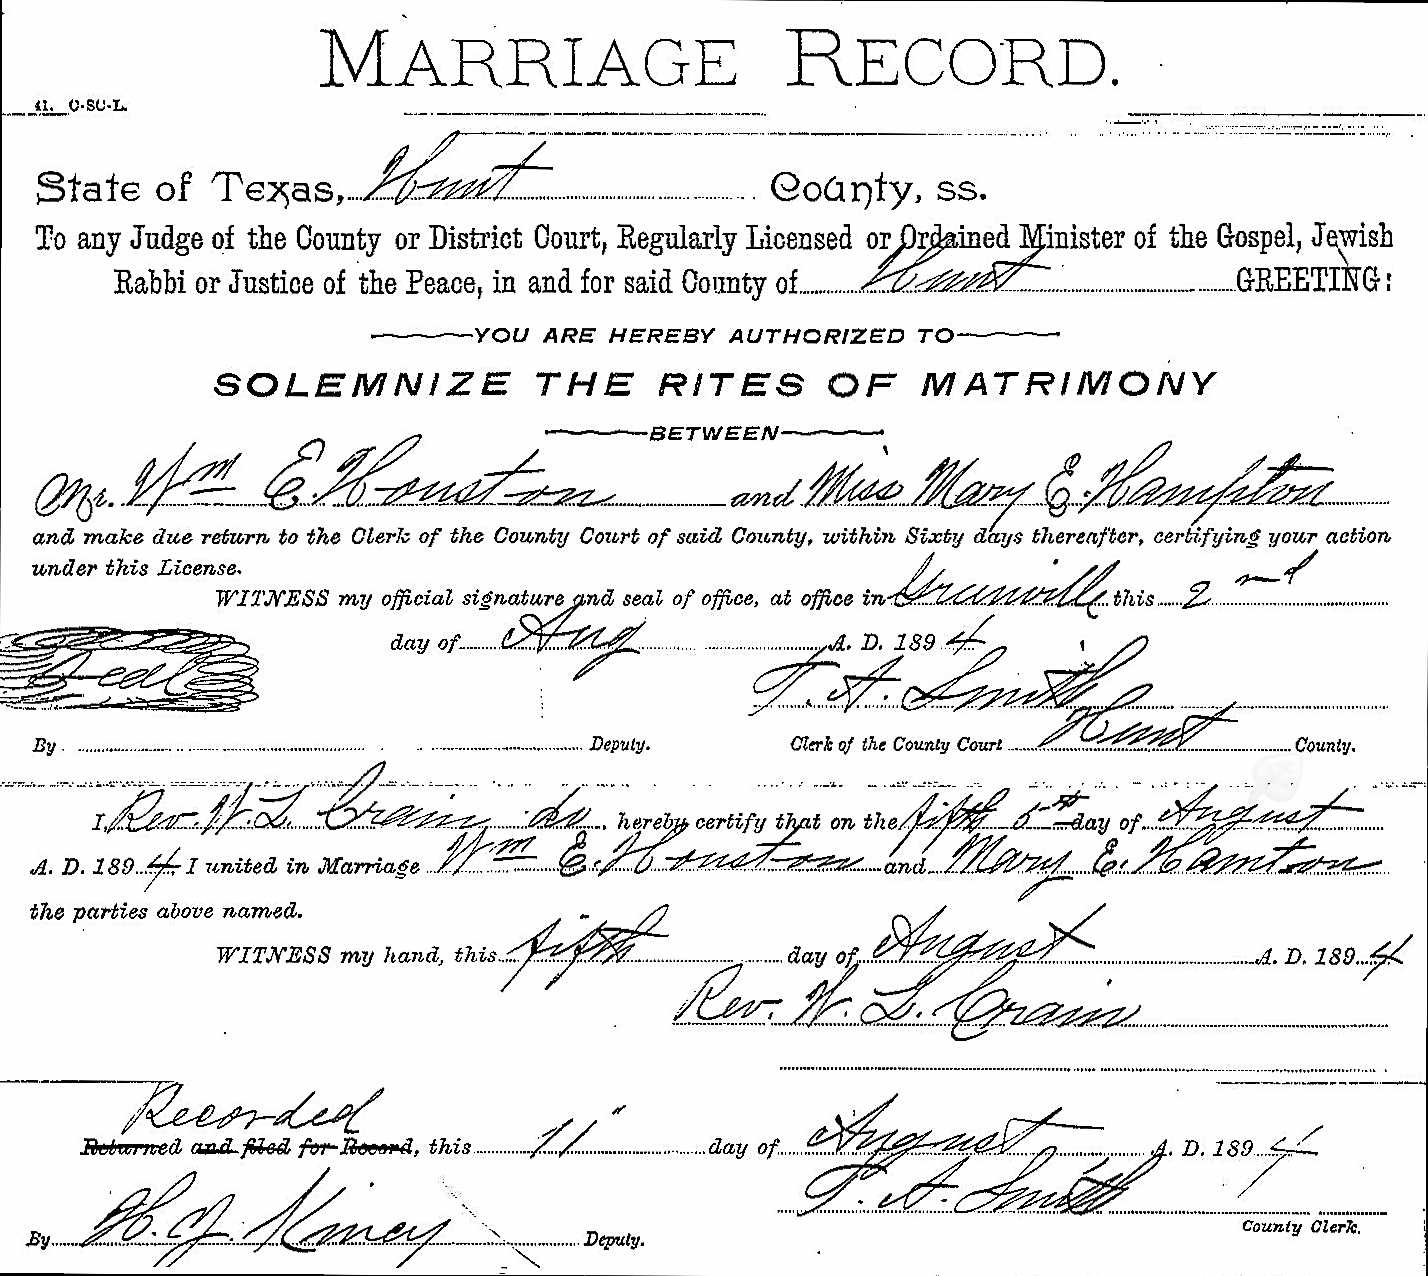 MARRIAGE RECORD.
41. C-SC-L.
State of Texas, Hunt County, ss.
To any Judge of the County or District Court, Regularly Licensed or Ordained Minister of the Gospel, Jewish
Rabbi or Justice of the Peace, in and for said County of Hunt GREETING:
YOU ARE HEREBY AUTHORIZED TO
SOLEMNIZE THE RITES OF MATRIMONY
BETWEEN
Mr. Wm E. Houston and Miss Mary E. Hampton
and make due return to the Clerk of the County Court of said County, within Sixty days thereafter, certifying your action
under this License.
WITNESS my official signature and seal of office, at office in Greenville this 2nd
day of Aug A. D. 1894
Seal
T. A. Smith
By Deputy. Clerk of the County Court Hunt County.
I, Rev. W. L. Crain do, hereby certify that on the fifth 5th day of August
A. D. 1894, I united in Marriage Wm E. Houston and Mary E. Hamton
the parties above named.
WITNESS my hand, this fifth day of August A. D. 1894
Rev. W. L. Crain
Recorded
Returned and filed for Record, this 11" day of August A. D. 1894
T. A. Smith
County Clerk.
By H. J. Kincy Deputy.